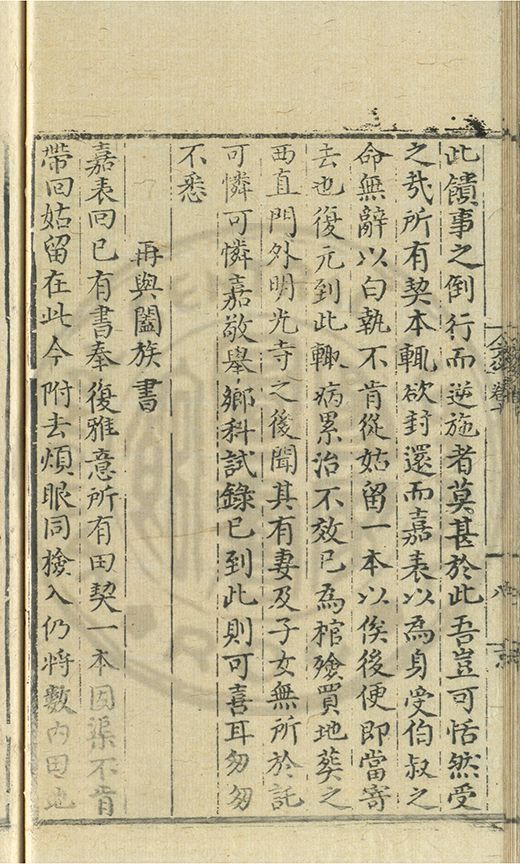 此饋事之倒行而逆施者莫甚於此吾豈可恬然受
之㢤所有契本輒欲封還而嘉表以為身受伯叔之
命無辭以白執不肯從姑留一本以俟後便即當寄
去也復元到此輒病累治不效已為棺殮買地葬之
西直門外明光寺之後聞其有妻及子女無所於託
可憐可憐嘉敬舉鄉科試錄已到此則可喜耳匆匆
不悉
再與闔族書
嘉表回已有書奉復雅意所有田契一本因渠不肯
帶回姑留在此今附去煩眼同撿入仍將數內田地